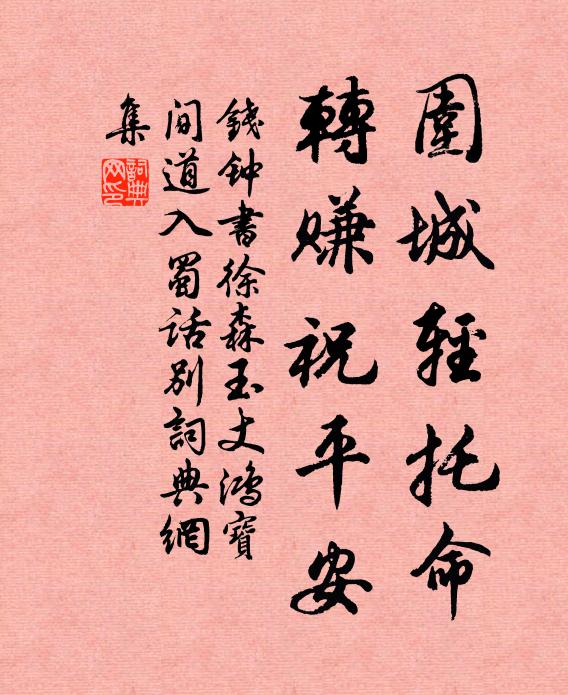 圍城輕托命
轉賺祝平安
錢钟書徐森玉丈鴻寶
間道入蜀話別詞典網
集
詞典
网印